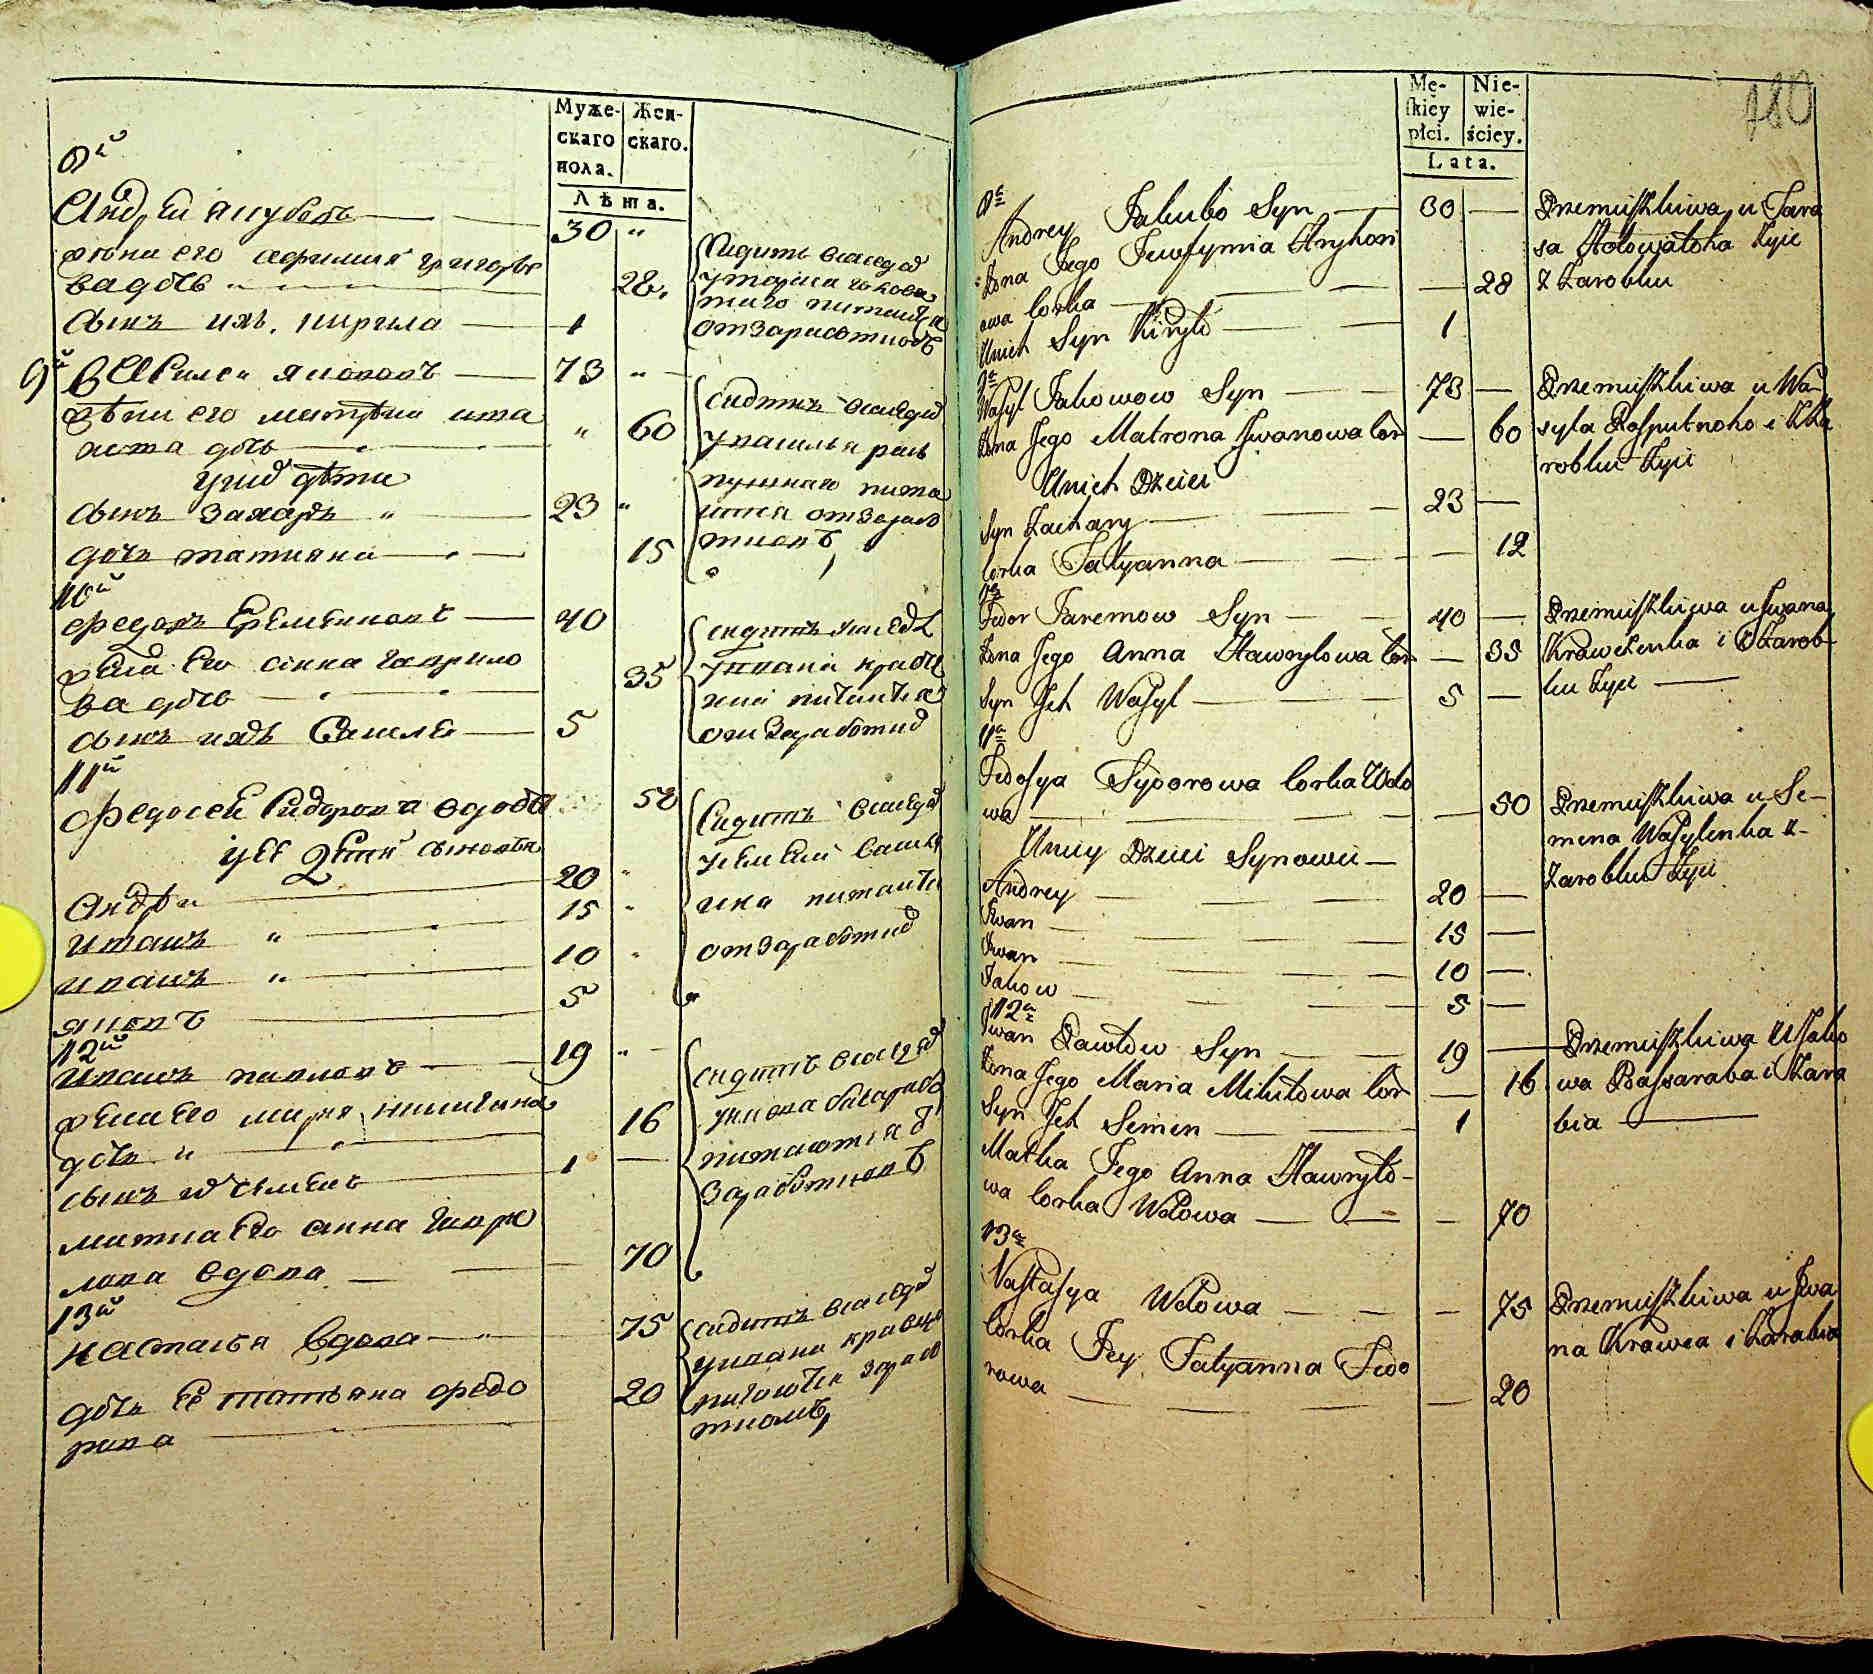 Муже-
скаго
пола.
Жен-
скаго.
Лѣта.
8й
Андрей якубовъ 30 "
жена его афимия григорье
ва дочь 28.
сынъ ихъ. кирила 1
сидитъ всаседа
утараса голова
таго питаитца
отзаработковъ
9й Василеи якововъ 73 "
жена его матрѣна ива
нова дочь " 60
унихъ дѣти
сынъ захаръ " 23 "
дочь татияна 15
сидитъ всаседа
увасилья рас
путнаго пита
итца отзарабо
тковъ
10й
федоръ Еремѣиковъ 40
жена Его анна гаврило
ва дочь 35
сынъ ихъ Василе 5
сидитъ
уивана кравче
нка питаитца
отзаработка
11й
федосея Сидорова вдова 50
уее дети сыновья
Андрѣи 20 "
иванъ " 15 "
иванъ " 10 "
яковъ 5
Сидитъ всаседа
усемена василе
нка питаитца
отзаработка
12й
иванъ павловъ 19 "
жена Его маря никитина
дочь " 16
сынъ ихъ семенъ 1
матка Его анна гаври
лова вдова 70
сидитъ всаседа
уякова басараба
питаютца
заработковъ
13й
настасья вдова 75
дочь Ее татьяна федо
рова 20
сидитъ всаседа
уивана кравца
питаютца зарабо
ткомъ
Mę-
skiey
płci.
Nie-
wie-
ściey.
Lata.
180
8e
Andrey Jakubo Syn 30
Żona Jego Jewfymia Hryhori
owa Corka 28
Unich Syn Kiryło 1
Przemiszkiwa u Tara
sa Hołowatoha Żyie
Z Zarobku
9e
Wasyl Jakowow Syn 73
Żona Jego Matrona Jwanowa Cor 60
Unich Dzieci
Syn Zachary 23
Corka Tatyanna 12
Przemiszkiwa u Wa
syla Rasputnoho i Z Za
robku Żyie
10e
Fedor Jaremow Syn 40
Żona Jego Anna Hawryłowa Cor 35
Syn Jch Wasyl 5
Przemiszkiwa u Jwana
Krawczenka i Z Zarob
ku Żyie
11e
Fedosya Sydorowa Corka Wdo
wa 50
Uniey Dzieci Synowie
Andrey 20
Jwan 15
Jwan 10
Jakow 5
Przemiszkiwa u Se-
mena Wasylenka z-
Zarobku Żyie
12e
Jwan Pawłow Syn 19
Żona Jego Maria Mikitowa Cor 16
Syn Jch Semen 1
Matka Jego Anna Hawryło-
wa Corka Wdowa 70
Przemiszkiwa U Jako
wa Bassaraba i Zara
bia
13e
Nastasya Wdowa 75
Corka Jey Tatyanna Fedo
rowa 20
Przemiszkiwa u Jwa
na Krawca i Zarabia